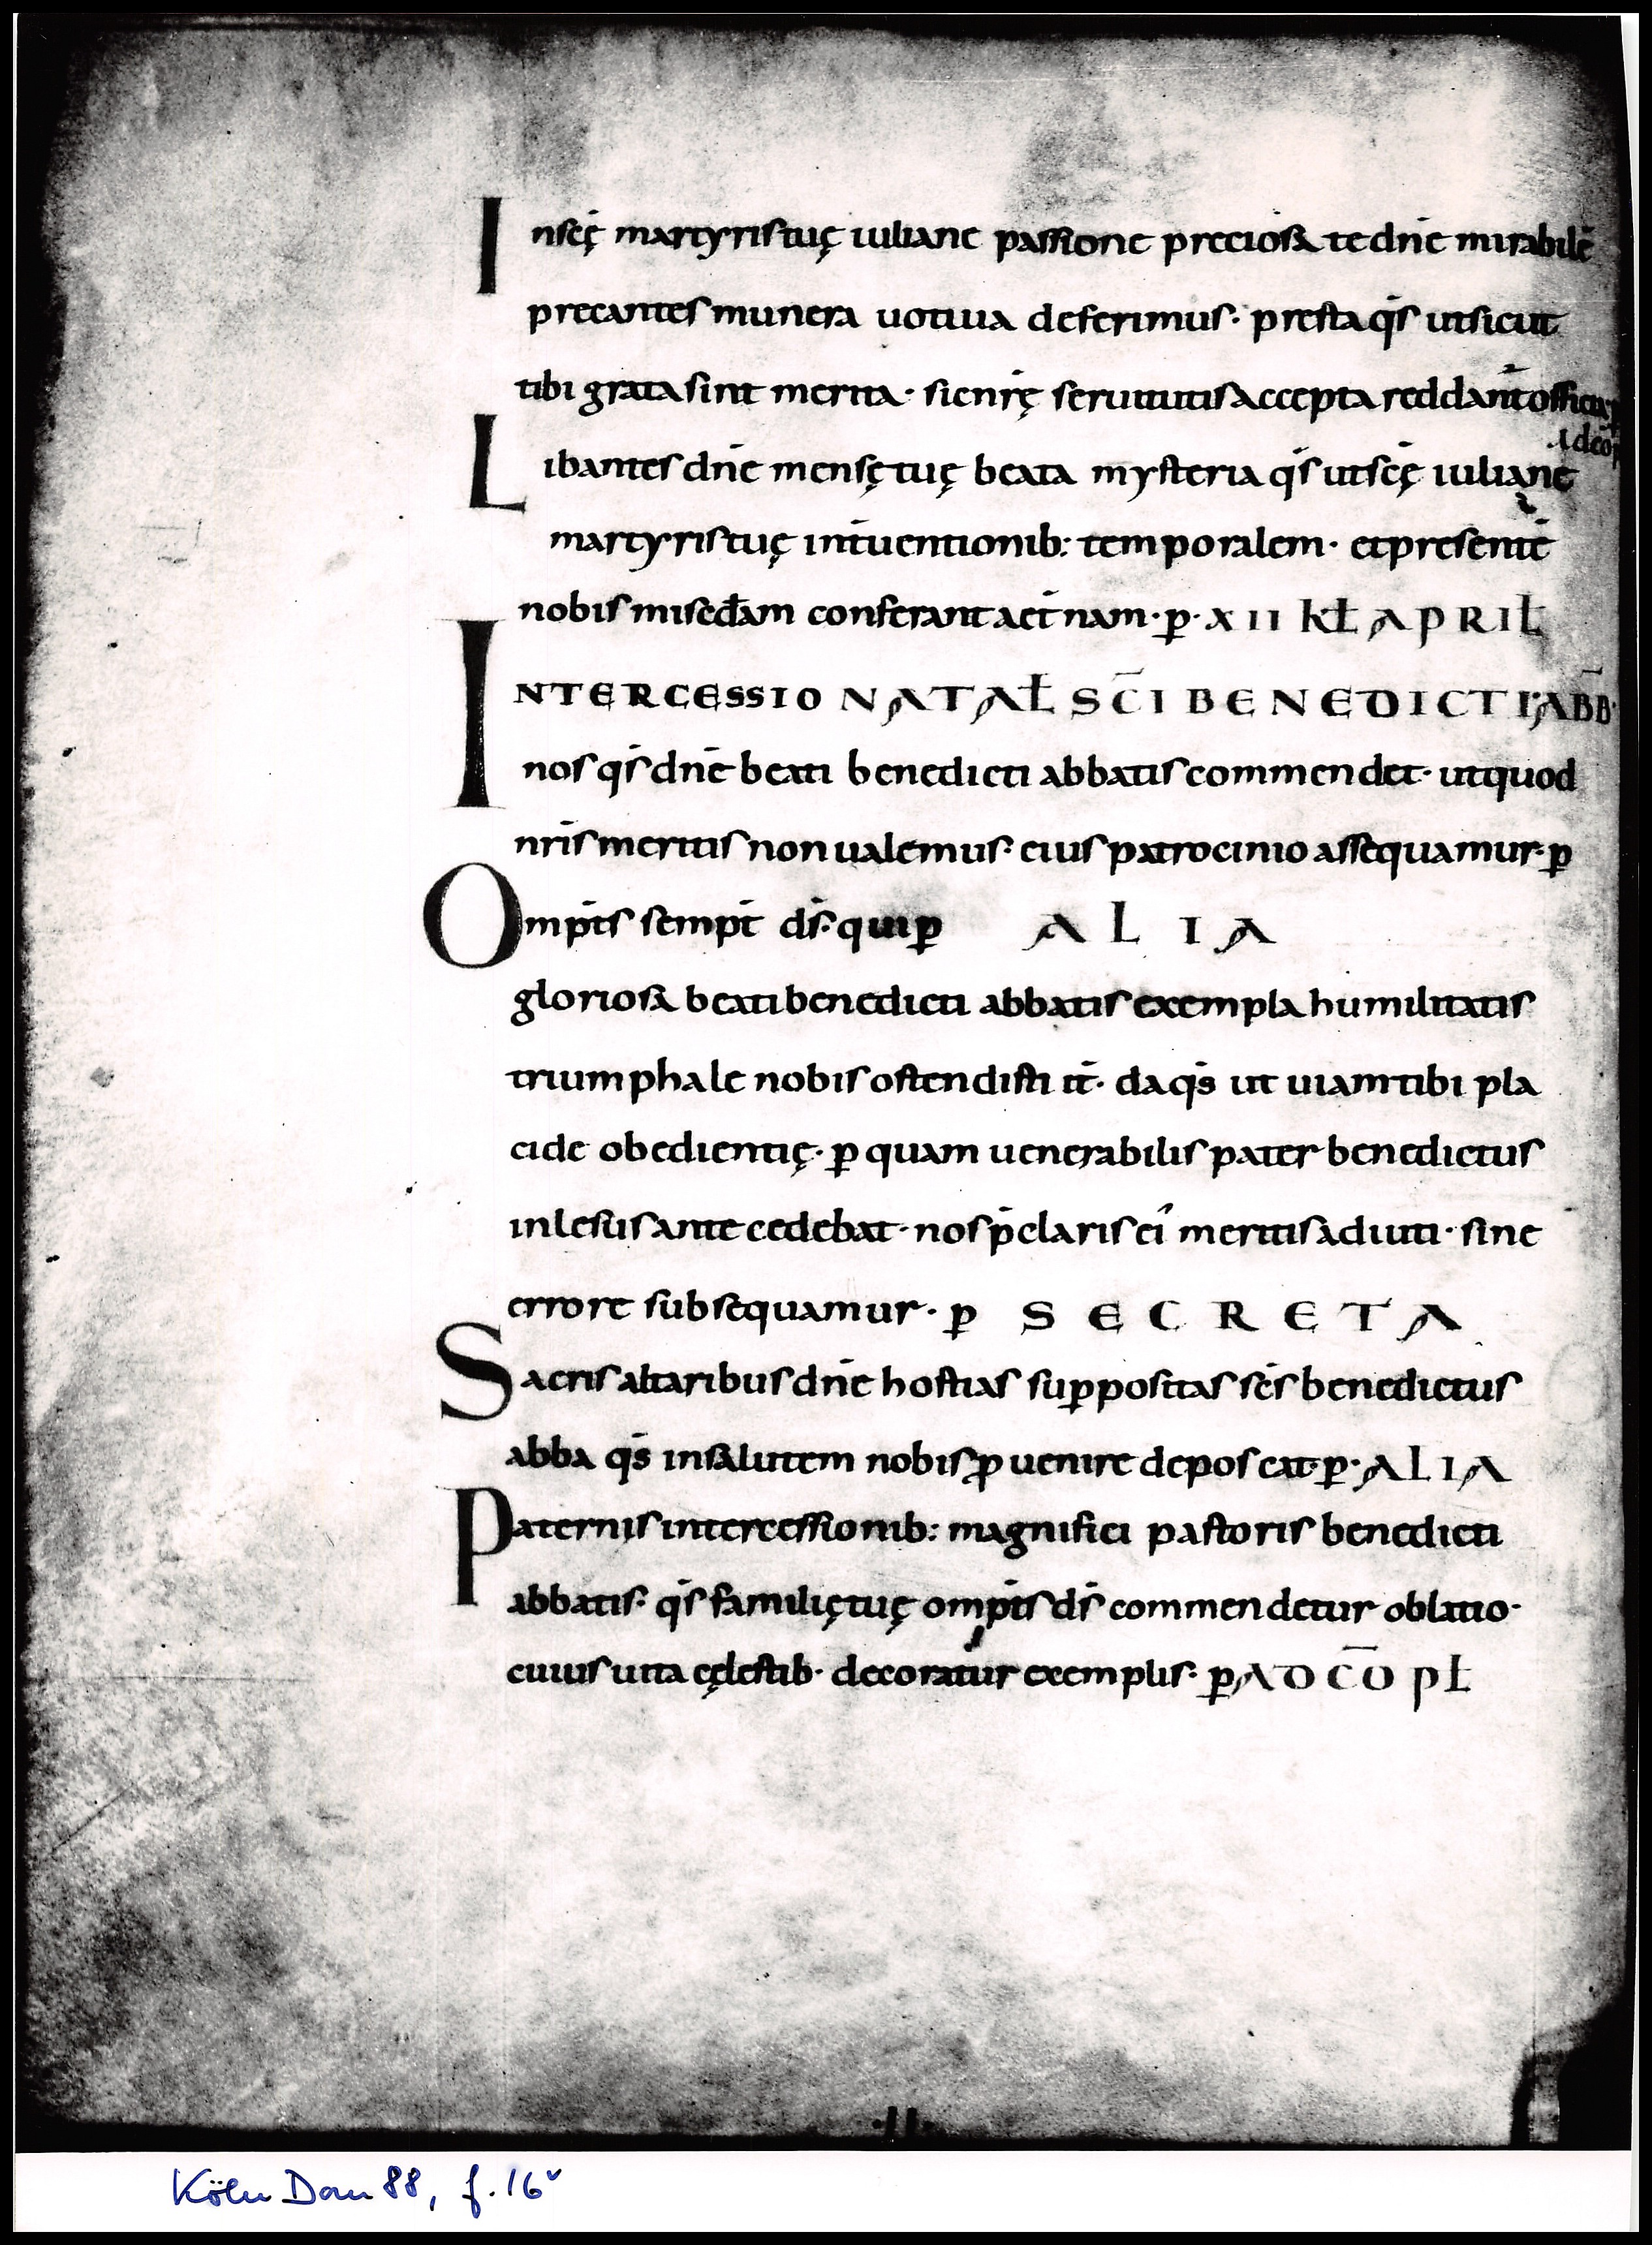 In scę̄ martyris tuę iuliane passione preciosa te dn̄e mirabilē
precantes munera uotiua deferimus· presta qs̄ ut sicut
tibi grata sint merita· sic nr̄ę seruitutis accepta reddant̄ officia· p
Ad cō p
Libantes dn̄e mensę tuę beata mysteria qs̄ ut scę̄ iuliane
martyris tuę int̄uentionib: temporalem· et presentē
nobis misedam̄ conferant aet̄nam· p̱· XII KL̄ APRIL̄
INTERCESSIO NATAL̄ SC̄I BENEDICTI ABB̄·
nos qs̄ dn̄e beati benedicti abbatis commendet· ut quod
nr̄is meritis non ualemus· eius patrocinio assequamur· p̱
Omp̄ts semp̄t ds̄· qui p̱ ALIA
gloriosa beati benedicti abbatis exempla humilitatis
triumphale nobis ostendisti it̄· da qs̄ ut uiam tibi pla
cide obedientię· p̱ quam uenerabilis pater benedictus
inlesus antecedebat· nos p̄claris ei᾽ meritis adiuti· sine
errore subsequamur· p̱ SECRETA
Sacris altaribus dn̄e hostias sup̱positas sc̄s benedictus
abba qs̄ in salutem nobis ꝓuenire deposcat· p̱· ALIA
Paternis intercessionib: magnifici pastoris benedicti
abbatis· qs̄ familię tuę omp̄ts ds̄ commendetur oblatio·
cuius uita cęlestib· decoratur exemplis· p̱ AD CŌ PL̄
·II·
Köln Dom 88, f. 16ᵛ